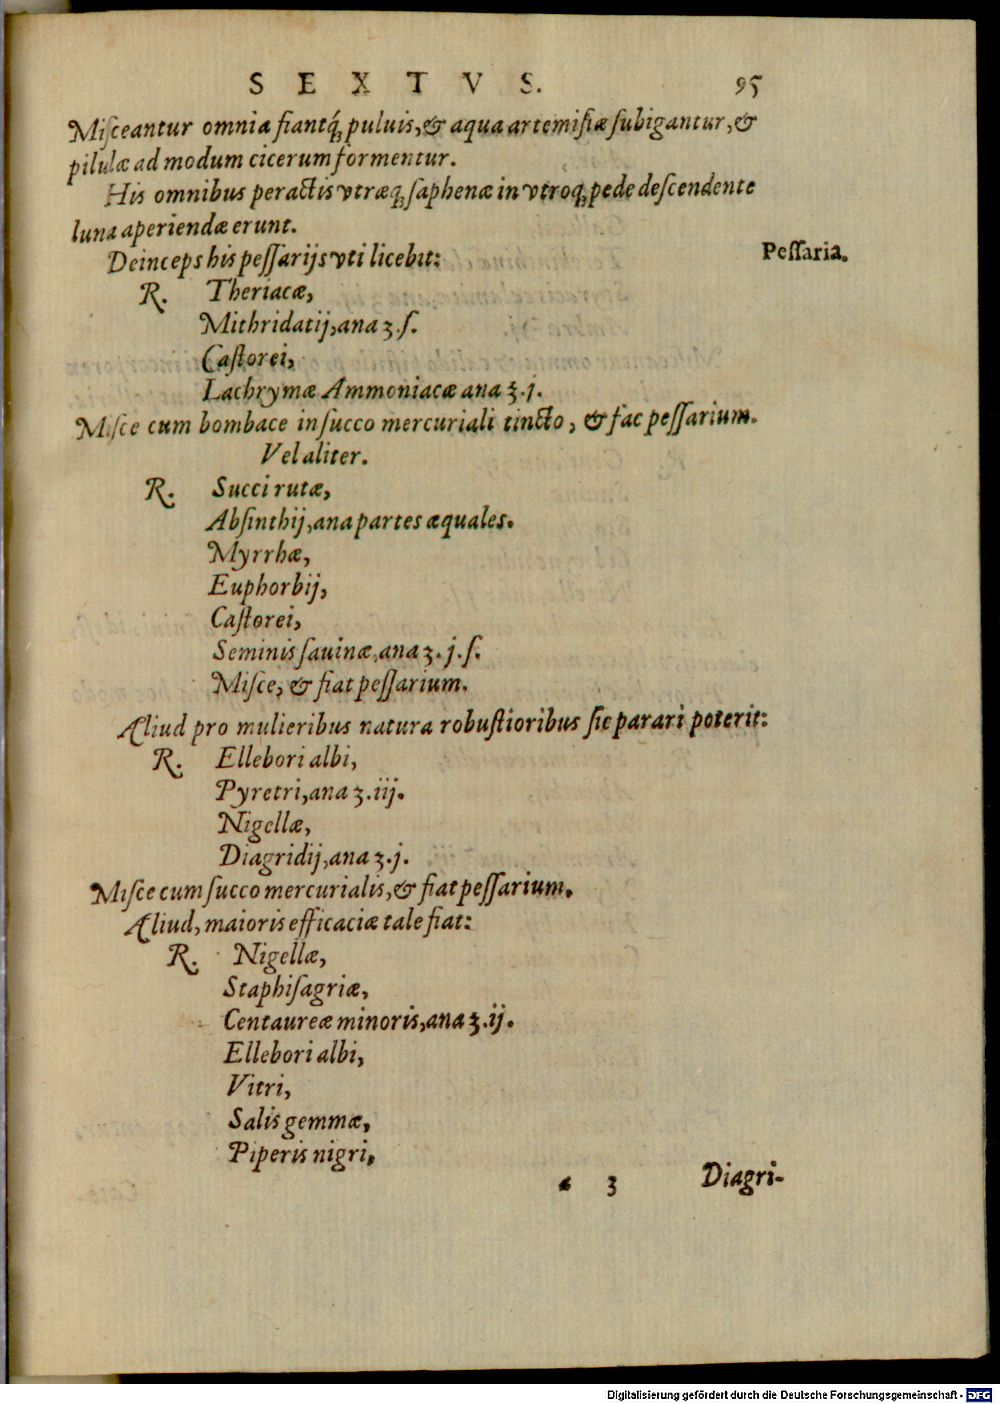 SEXTVS. 95
Misceantur omnia fiantq́; puluis, & aqua artemisiæ subigantur, &
pilulæ ad modum cicerum formentur.
His omnibus peractis vtræq; saphenæ in vtroq; pede descendente
luna aperiendæ erunt.
Deinceps his pessarijs vti licebit: Pessaria.
R. Theriacæ,
Mithridatij, ana ʒ.ſ.
Castorei,
Lachrymæ Ammoniacæ ana ʒ.j.
Misce cum bombace in succo mercuriali tincto, & fac pessarium.
Vel aliter.
R. Succi rutæ,
Absinthij, ana partes æquales.
Myrrhæ,
Euphorbij,
Castorei,
Seminis sauinæ, ana ʒ.j.ſ.
Misce, & fiat pessarium.
Aliud pro mulieribus natura robustioribus sic parari poterit:
R. Ellebori albi,
Pyretri, ana ʒ.iij.
Nigellæ,
Diagridij, ana ʒ.j.
Misce cum succo mercurialis, & fiat pessarium.
Aliud, maioris efficaciæ tale fiat:
R. Nigellæ,
Staphisagriæ,
Centaureæ minoris, ana ʒ.ij.
Ellebori albi,
Vitri,
Salis gemmæ,
Piperis nigri,
3 Diagri-
Digitalisierung gefördert durch die Deutsche Forschungsgemeinschaft - DFG